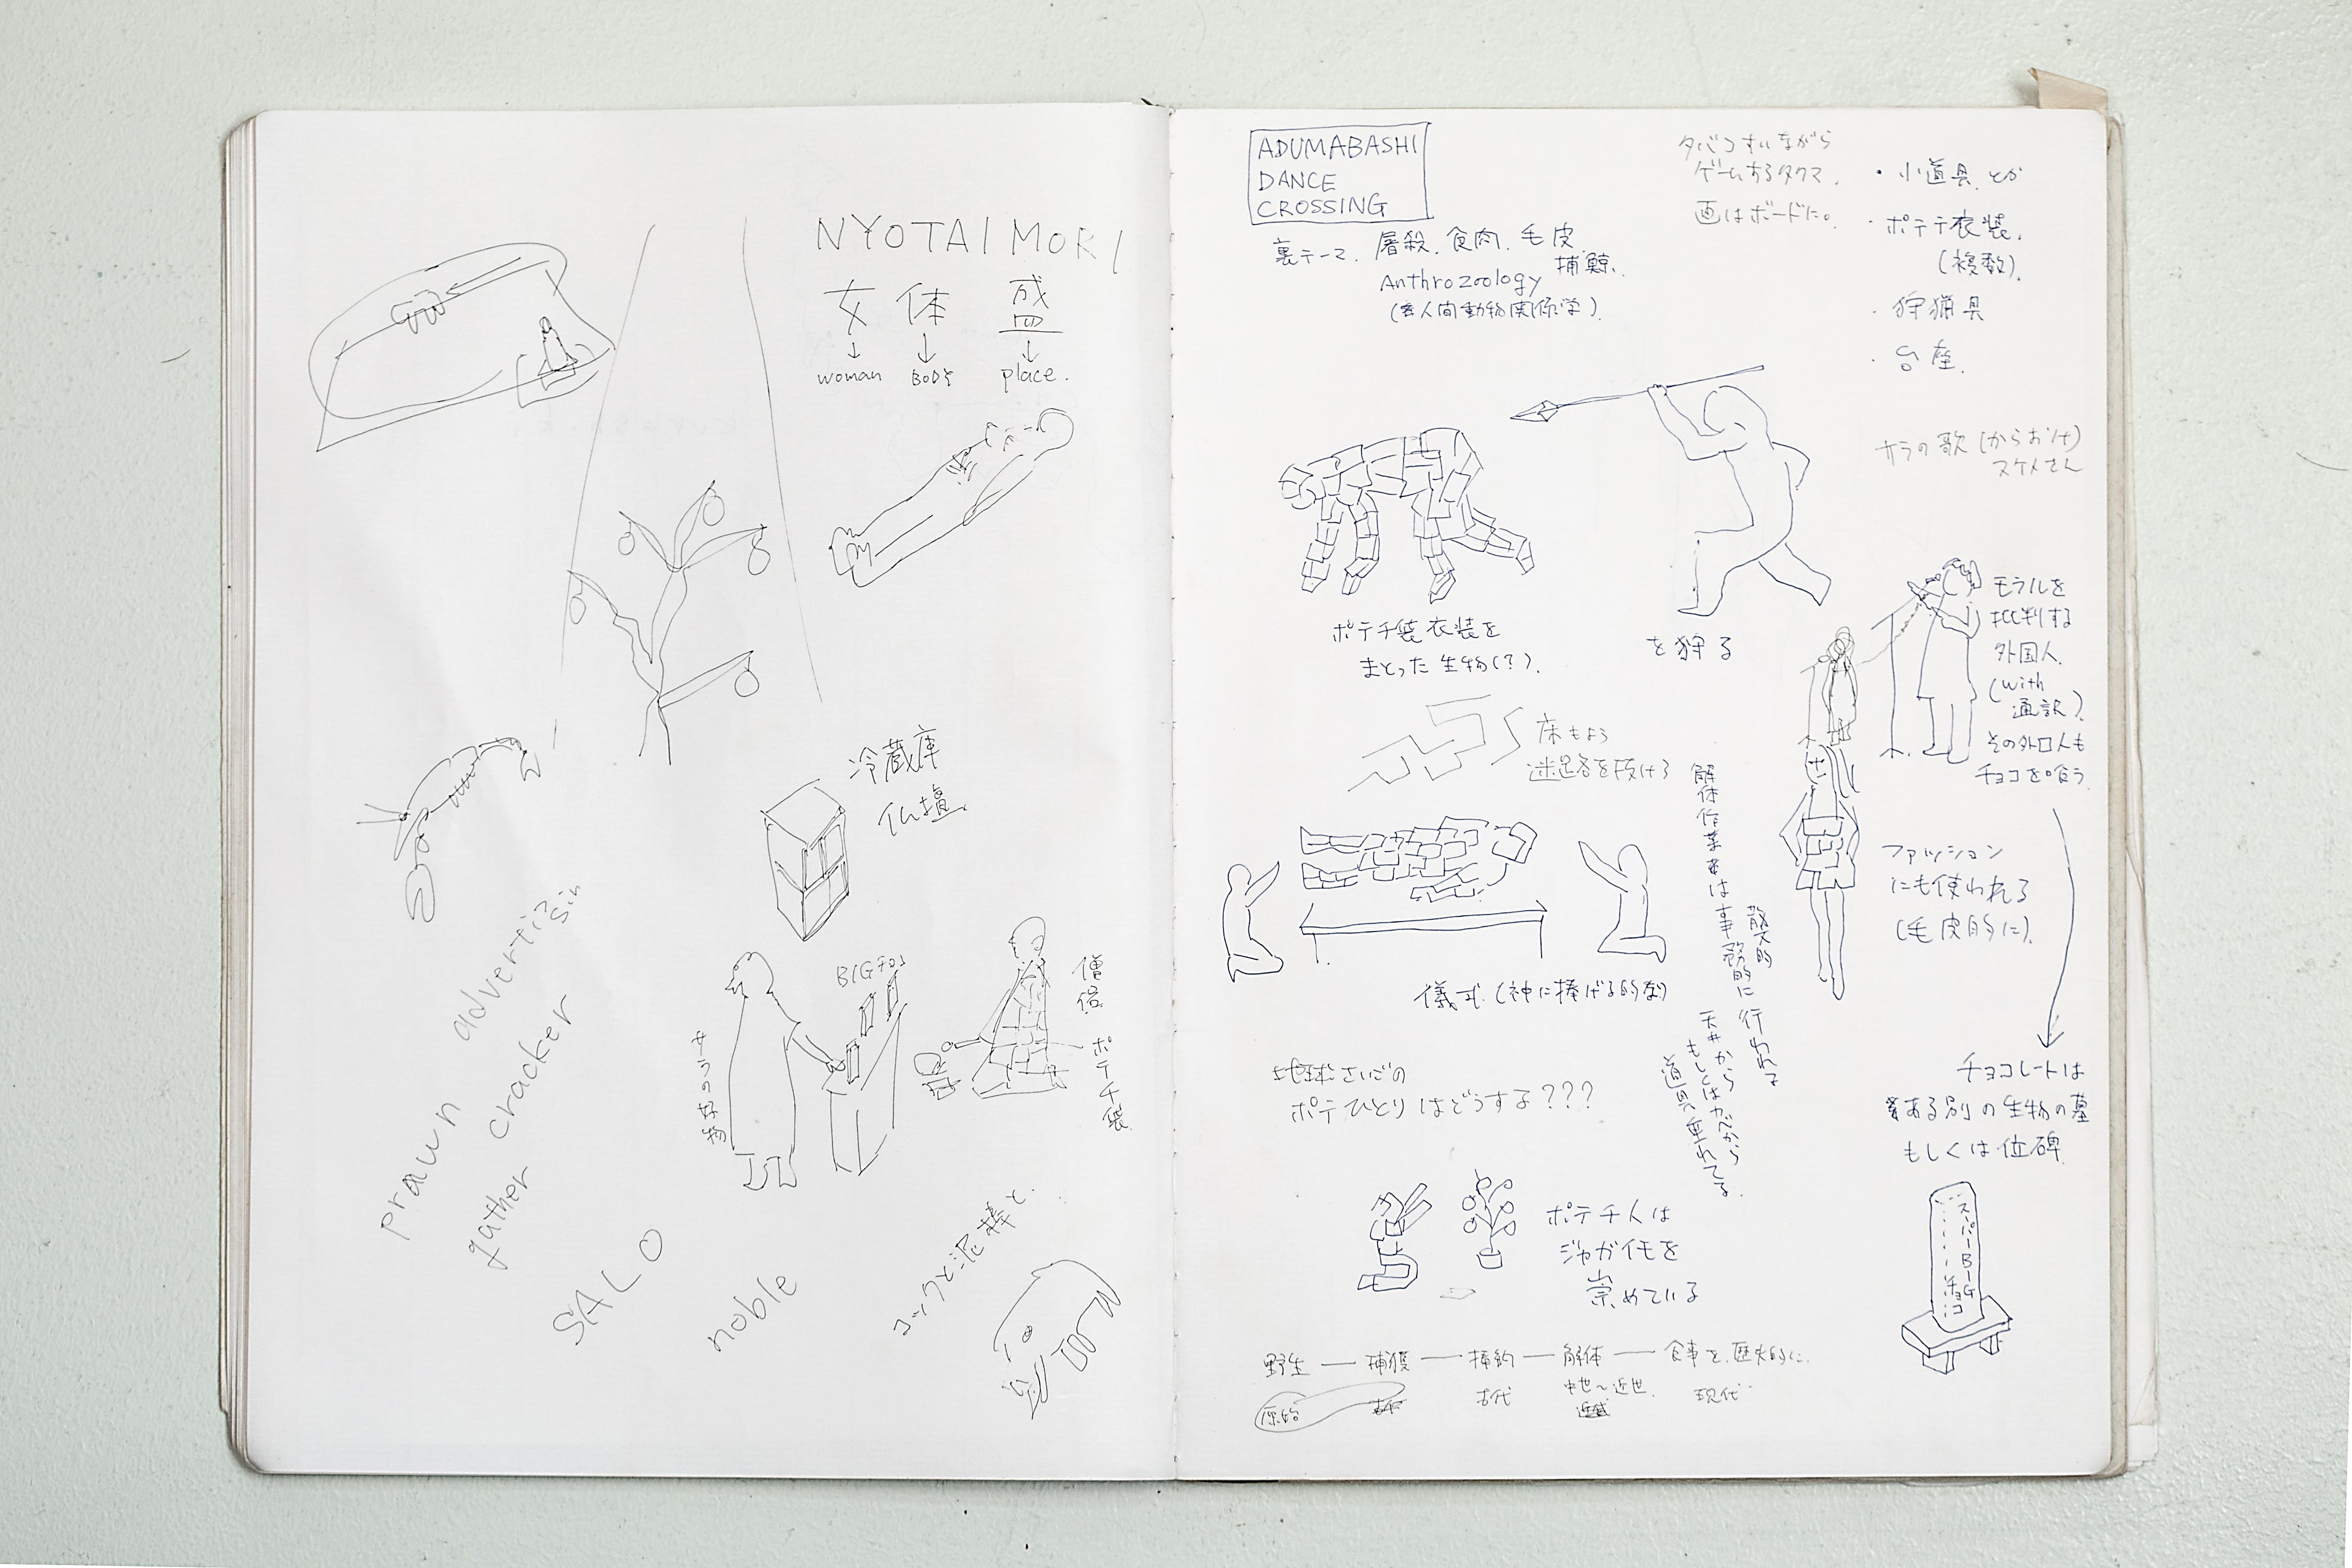 NYOTAIMORI
女 体 盛
↓ ↓ ↓
woman BODY place.
冷蔵庫
仏壇
BIGカツ
僧侶
ポテチ袋
prawn advertisin
gather cracker
SALO
noble
コックと泥棒と
ADUMABASHI
DANCE
CROSSING
裏テーマ. 屠殺. 食肉. 毛皮.
捕鯨.
Anthrozoology
(人間動物関係学).
タバコすいながら
ゲームするタクマ.
画はボードに。
・小道具とか
・ポテチ衣装.
(複数).
・狩猟具
・台座.
サラの歌(からおけ)
スケメさん
ポテチ袋衣装を
まとった生物(?).
を狩る
モラルを
批判する
外国人.
(with
通訳).
その外口人も
チョコを喰う.
床もよう
迷路を抜ける
解体作業は事務的に行われる
散文的
天井から
もしくはカベから
道具が垂れてる.
ファッション
にも使われる
(毛皮的に).
儀式.(神に捧げる的な)
地球さいごの
ポテひとりはどうするよ???
チョコレートは
ある別の生物の墓
もしくは位碑
ポテチ人は
ジャガイモを
崇めている
スーパーBIG
チョコ
野生 — 捕獲 — 捧納 — 解体 — 食事を.歴史的に.
原始 古代 中世〜近世. 現代.